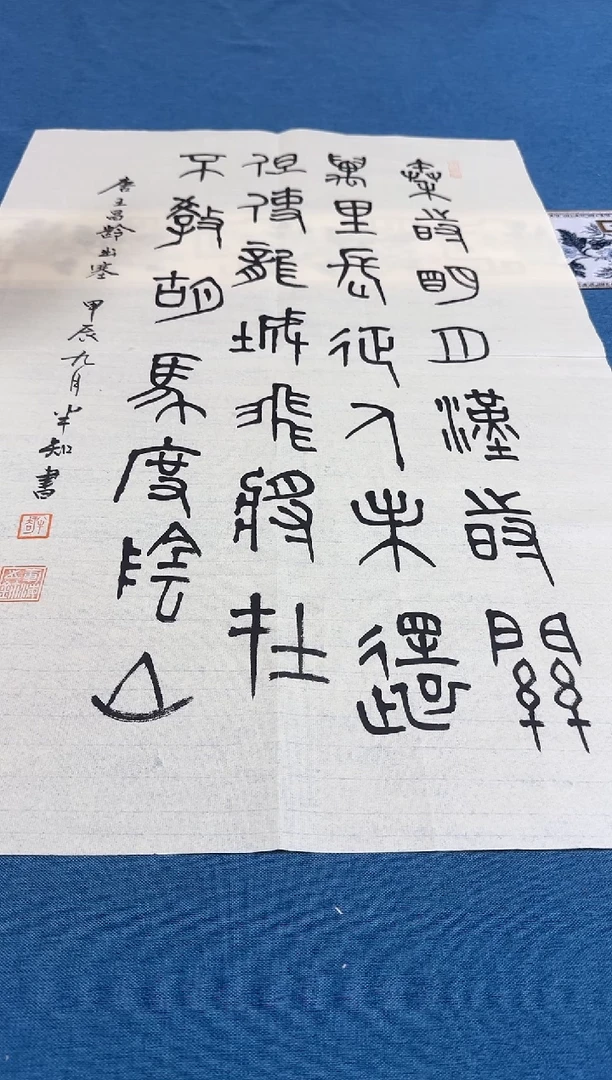 秦時明月漢時關
萬里長征人未還
但使龍城飛將在
不教胡馬度陰山
唐王昌齡出塞 甲辰九月 半知書